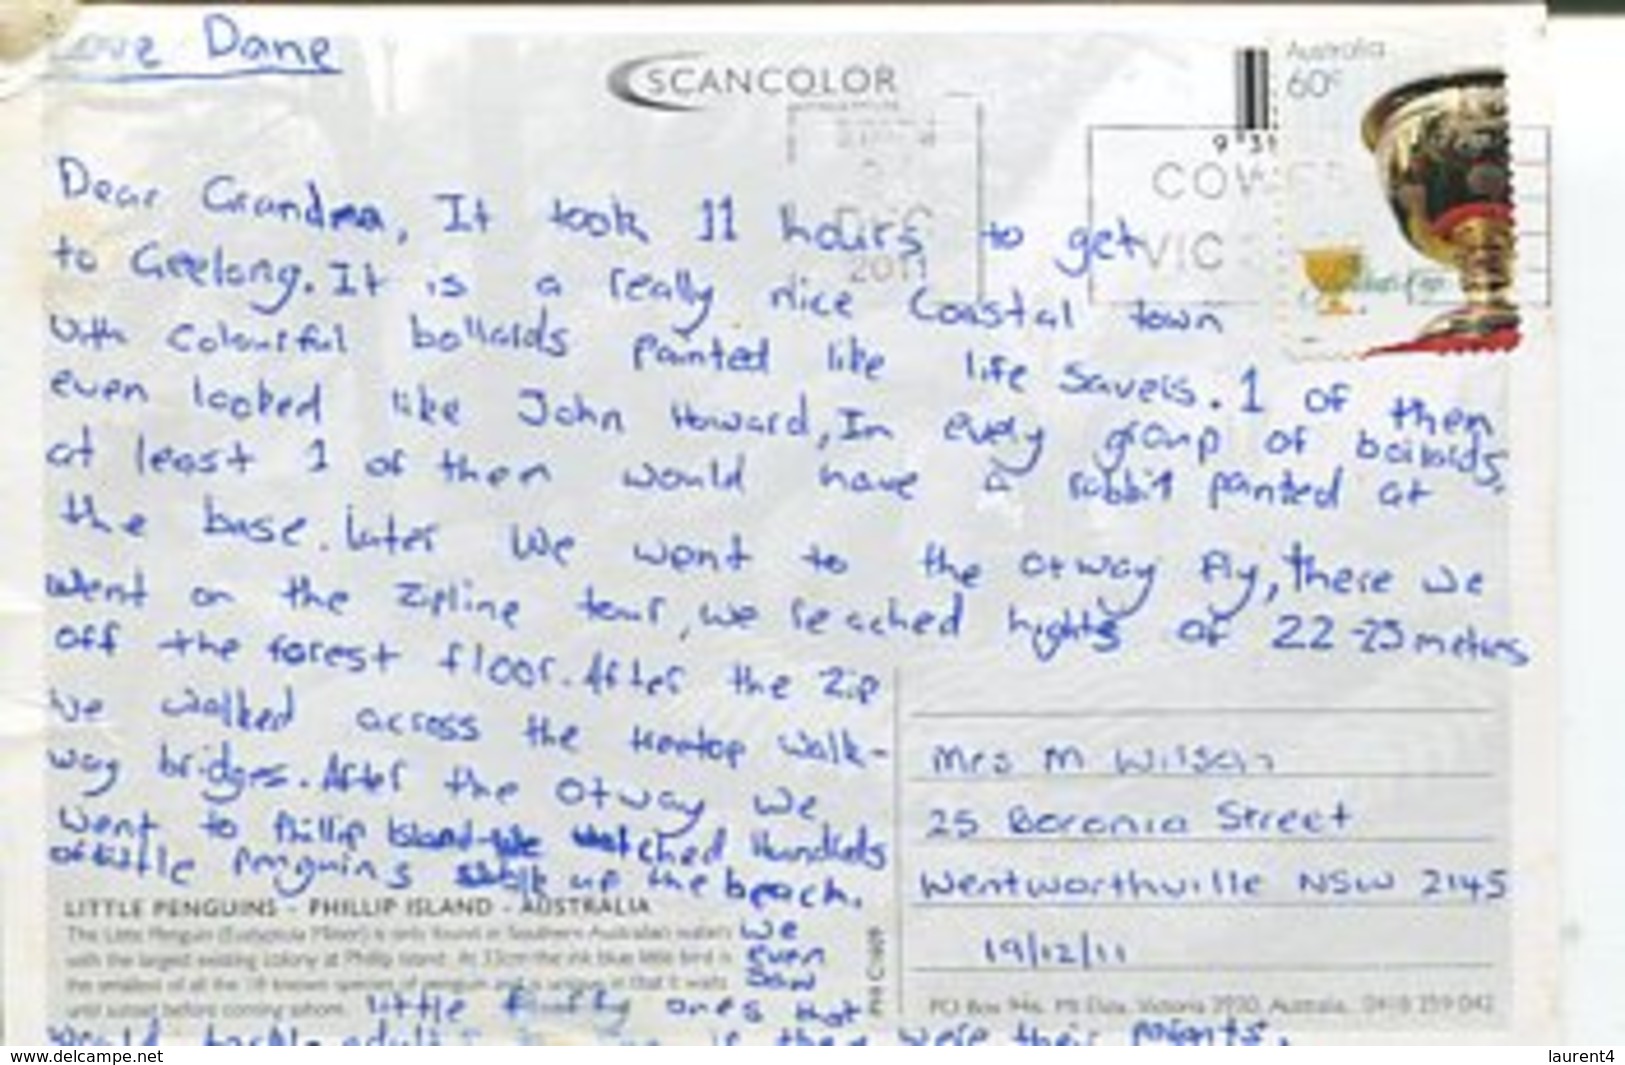 Love Dane
SCANCOLOR
Australia
60c
9 31
2011
VIC
Dear Grandma, It took 11 hours to get
to Geelong. It is a really nice Coastal town
with Colourful bollards painted like life savers. 1 of them
even looked like John Howard, In every group of bollards,
at least 1 of them would have a rabbit painted at
the base. later we went to the otway fly, there we
went on the zipline tour, we reached hights of 22-25 meters
off the forest floor. After the zip
we walked across the treetop walk-
way bridges. After the otway we
went to Phillip Island we watched Hundreds
of little penguins walk up the beach.
we
even
saw
little fluffy ones that
would tackle adults as if they were their parents.
Mrs M Wilson
25 Boronia Street
Wentworthville NSW 2145
19/12/11
LITTLE PENGUINS - PHILLIP ISLAND - AUSTRALIA
The Little Penguin (Eudyptula Minor) is only found in Southern Australian waters
with the largest existing colony at Phillip Island. At 33cm the ink blue little bird is
the smallest of all the 18 known species of penguin and is unique in that it waits
until sunset before coming ashore.
PO Box 946, Mt Eliza, Victoria 3930, Australia. 0418 359 042
www.delcampe.net
laurent4